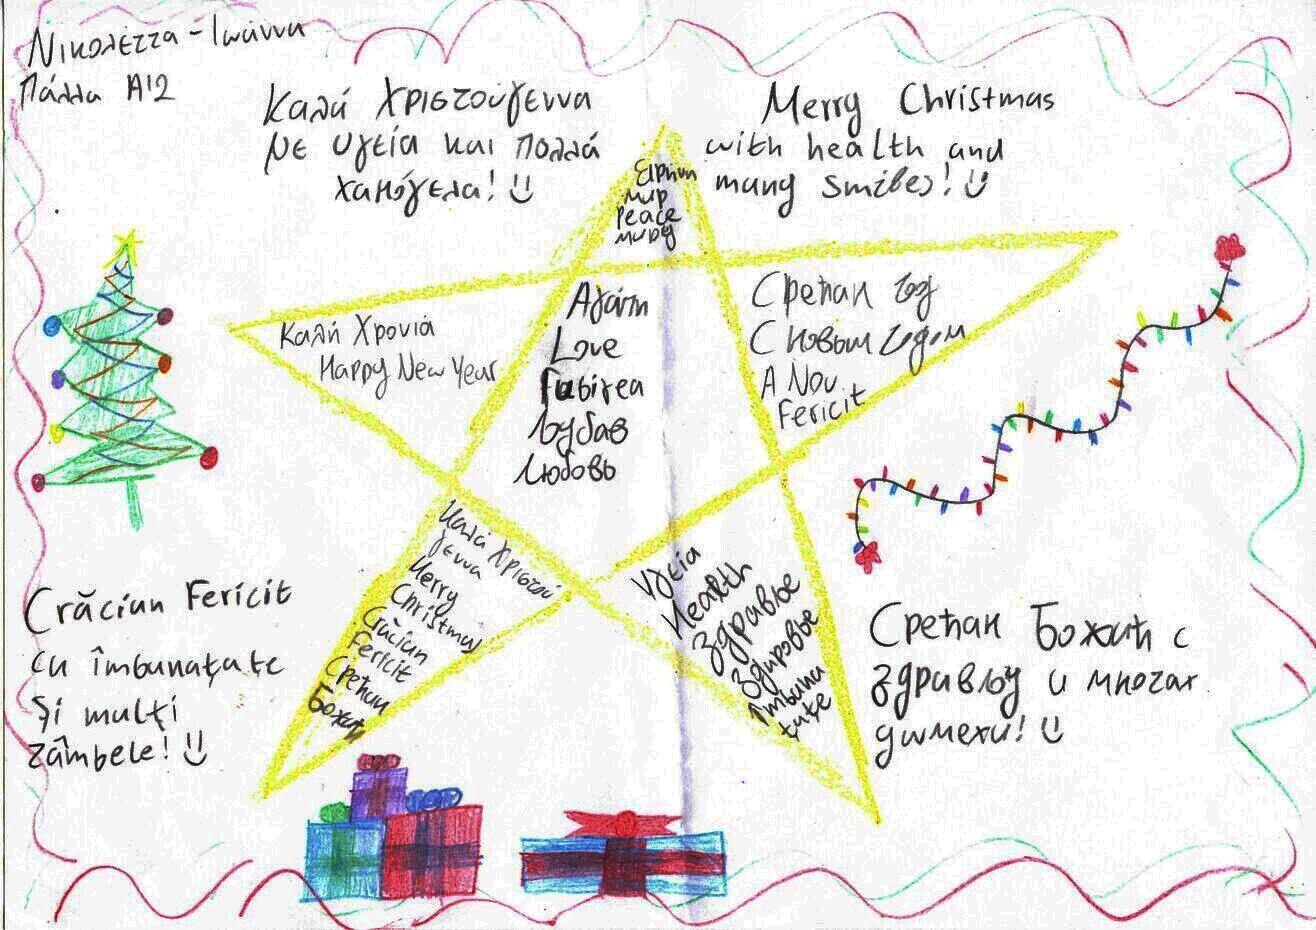 Νικολέττα-Ιωάννα
Πάλλα Α12
Καλά Χριστούγεννα
με υγεία και πολλά
χαμόγελα!
Merry Christmas
with health and
many smiles!
Ειρήνη
мир
peace
миру
Καλή Χρονιά
Happy New Year
Αγάπη
Love
Iubirea
љубав
Любовь
Срећан год
С новым годом
A Nou
Fericit
Καλά Χριστού
γεννα
Merry
Christmas
Crăciun
Fericit
Срећан
Божић
Υγεία
Health
Здравље
Здоровье
îmbuna
tațe
Crăciun Fericit
cu îmbunatațe
și mulți
zâmbele!
Срећан Божић с
здрављу и многах
димехи!